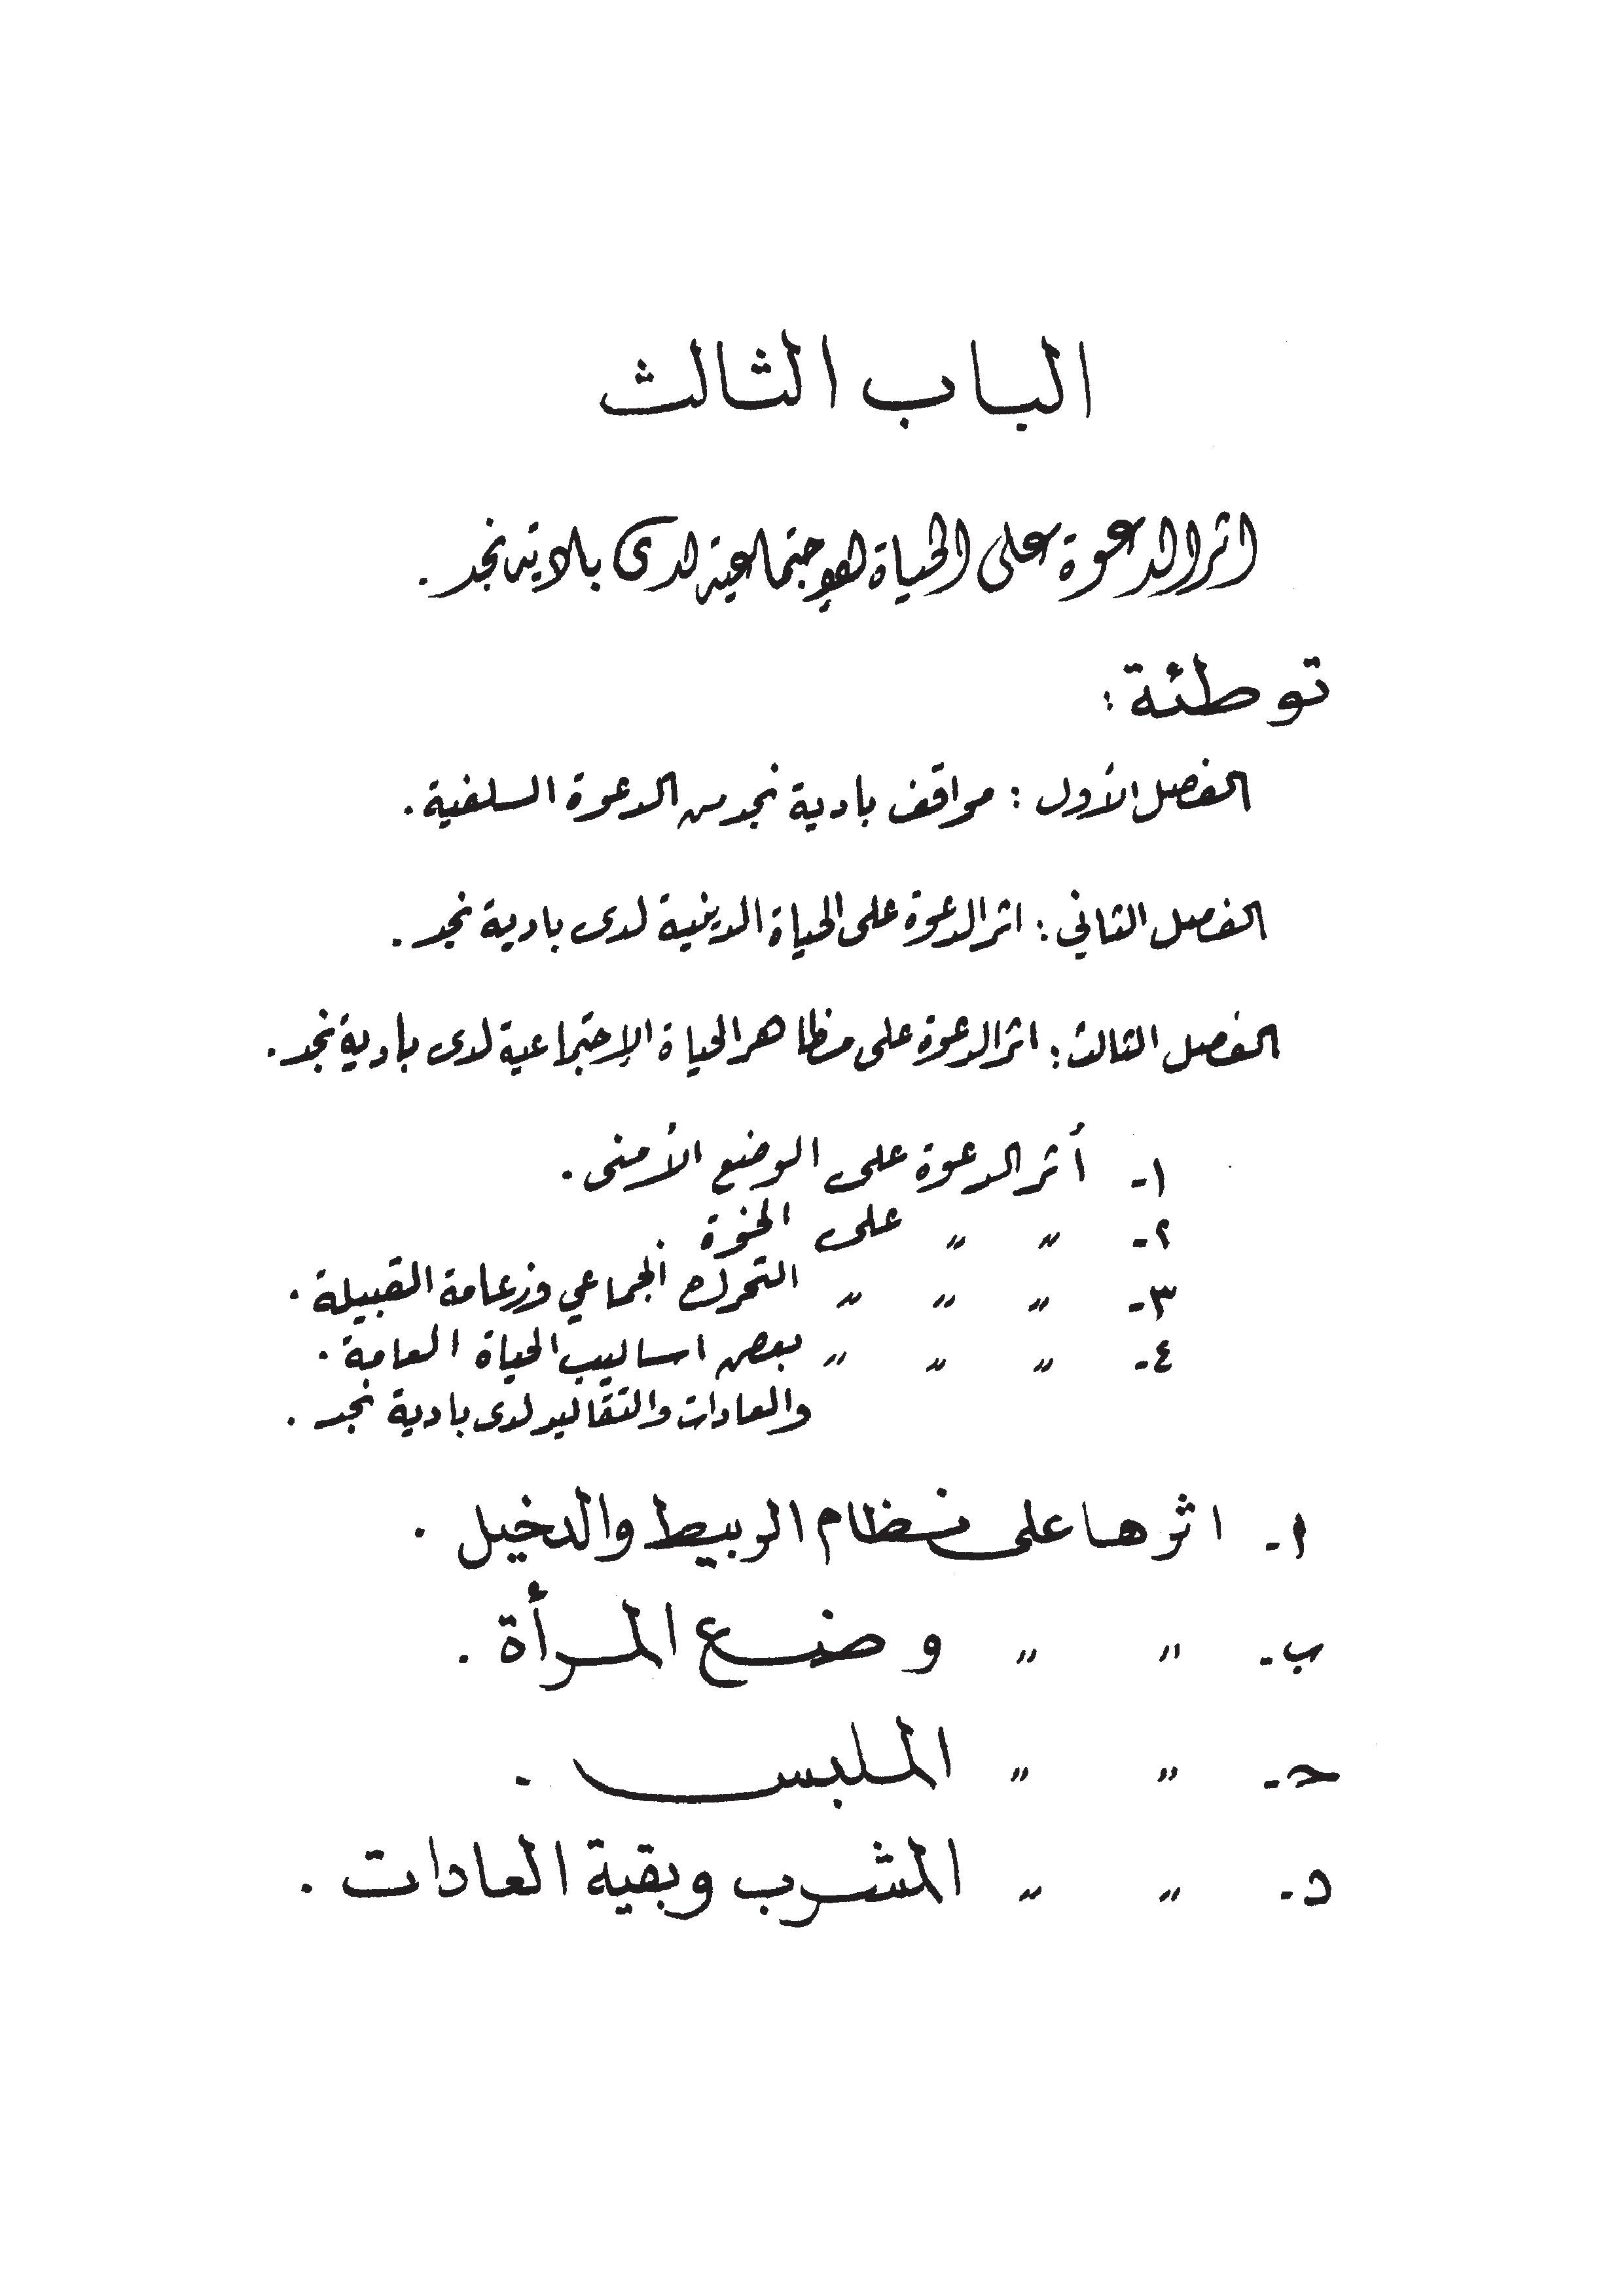 الباب الثالث
اثر الدعوة على الحياة الإجتماعية لدى بادية نجد .
توطئة :
الفصل الأول : مواقف بادية نجد من الدعوة السلفية .
الفصل الثاني : اثر الدعوة على الحياة الدينية لدى بادية نجد .
الفصل الثالث : اثر الدعوة على مظاهر الحياة الإجتماعية لدى بادية نجد .
١- أثر الدعوة على الوضع الأمنى .
٢- " " على الخوة
٣- " " " التحرك الجماعي وزعامة القبيلة .
٤- " " " بعض اساليب الحياة العامة .
والعادات والتقاليد لدى بادية نجد .
أ- اثرها على نظام الربيط والدخيل .
ب- " " وضع المرأة .
حـ- " " الملبس .
د- " " المشرب وبقية العادات .